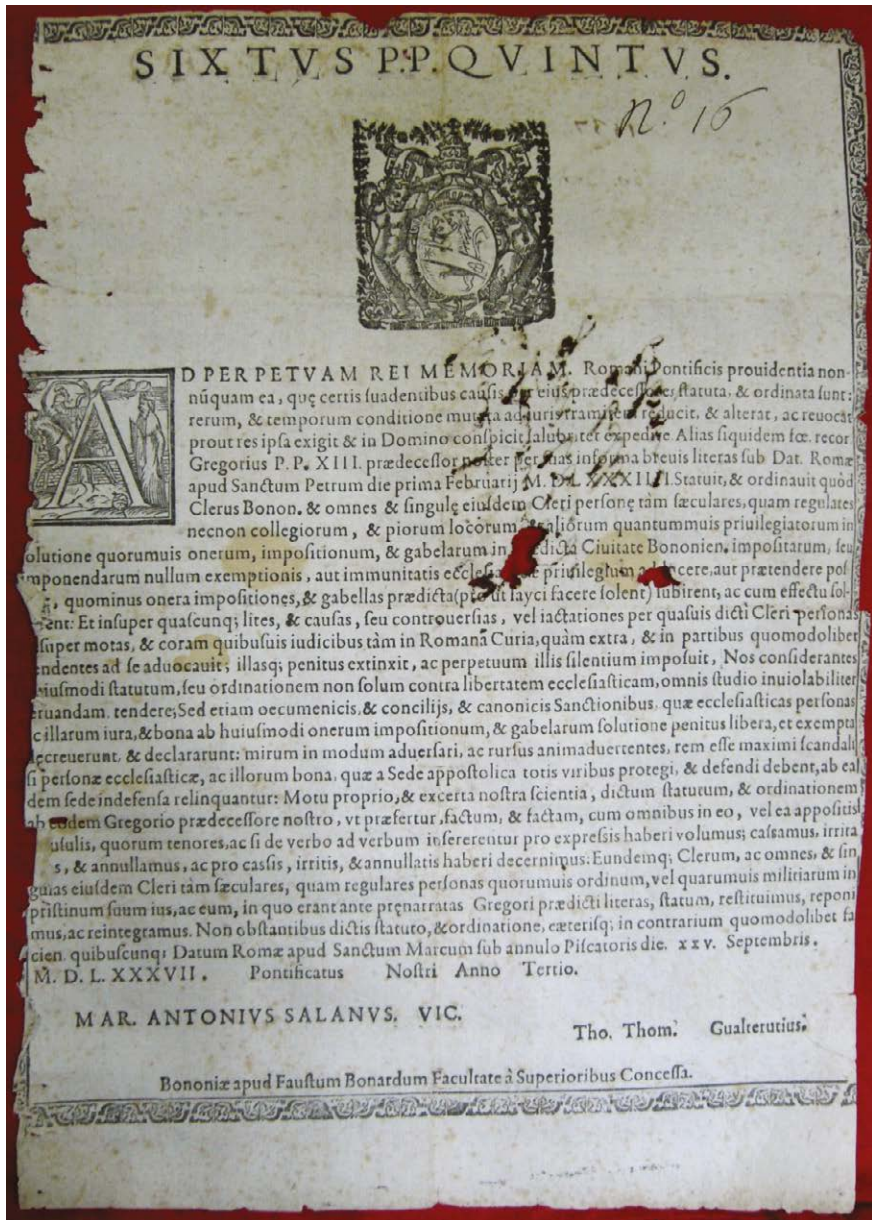 SIXTVS P.P. QVINTVS.
N.º 16
AD PERPETVAM REI MEMORIAM. Romani Pontificis prouidentia non-
nũquam ea, quę certis suadentibus causis per eius prædecessores statuta, & ordinata sunt:
rerum, & temporum conditione mutata ad iuris tramitem reducit, & alterat, ac reuocat
prout res ipsa exigit & in Domino conspicit salubriter expedire. Alias siquidem fœ. recor
Gregorius P. P. XIII. prædecessor noster per suas in forma breuis literas sub Dat. Romæ
apud Sanctum Petrum die prima Februarij M. D. LXXXIIII. Statuit, & ordinauit quòd
Clerus Bonon. & omnes & singulę eiusdem Cleri personę tàm sæculares, quam regulares
necnon collegiorum, & piorum locorum & aliorum quantummuis priuilegiatorum in
olutione quorumuis onerum, impositionum, & gabelarum in Ciuitate Bononien. impositarum, seu
mponendarum nullum exemptionis, aut immunitatis priuilegium aut prætendere pos
, quominus onera impositiones, & gabellas prædicta (pro ut layci facere solent) subirent, ac cum effectu sol-
ent: Et insuper quascunq; lites, & causas, seu controuersias, vel iactationes per quasuis dicti Cleri personas
super motas, & coram quibusuis iudicibus tàm in Romanâ Curia, quàm extra, & in partibus quomodolibet
endentes ad se aduocauit; illasq; penitus extinxit, ac perpetuum illis silentium imposuit, Nos considerantes
eiusmodi statutum, seu ordinationem non solum contra libertatem ecclesiasticam, omnis studio inuiolabiliter
eruandam. tendere; Sed etiam oecumenicis, & concilijs, & canonicis Sanctionibus, quæ ecclesiasticas personas
cillarum iura, & bona ab huiusmodi onerum impositionum, & gabelarum solutione penitus libera, et exempta
ecreuerunt, & declararunt: mirum in modum aduersari, ac rursus animaduertentes, rem esse maximi scandali
si personæ ecclesiasticæ, ac illorum bona, quæ a Sede appostolica totis viribus protegi, & defendi debent, ab ea
dem sede indefensa relinquantur: Motu proprio, & excerta nostra scientia, dictum statutum, & ordinationem
ab eodem Gregorio prædecessore nostro, vt præfertur, factum, & factam, cum omnibus in eo, vel ea appositis
usulis, quorum tenores, ac si de verbo ad verbum insererentur pro expressis haberi volumus; cassamus, irrita
s, & annullamus, ac pro cassis, irritis, & annullatis haberi decernimus: Eundemq; Clerum, ac omnes, & sin
gulas eiusdem Cleri tàm sæculares, quam regulares personas quorumuis ordinum, vel quarumuis militiarum in
pristinum suum ius, ac eum, in quo erant ante pręnarratas Gregori prædicti literas, statum, restituimus, reponi
mus, ac reintegramus. Non obstantibus dictis statuto, & ordinatione, cæterisq; in contrarium quomodolibet fa
cien. quibuscunq; Datum Romæ apud Sanctum Marcum sub annulo Piscatoris die. xxv. Septembris.
M. D. L. XXXVII. Pontificatus Nostri Anno Tertio.
MAR. ANTONIVS SALANVS. VIC.
Tho. Thom. Gualterutius.
Bononiæ apud Faustum Bonardum Facultate à Superioribus Concessa.